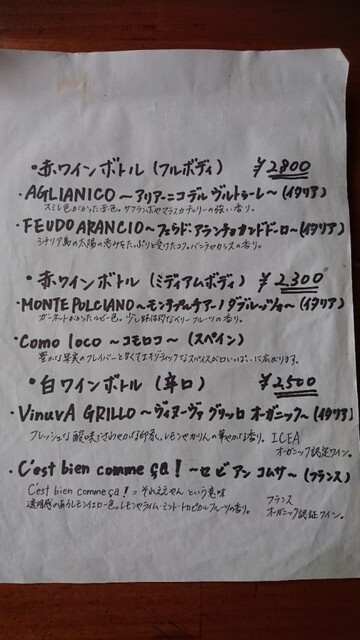 ・赤ワインボトル (フルボディ) ¥2800
・AGLIANICO～アリアーニコ デル ヴルトゥーレ～(イタリア)
スミレ色がかった赤色。サクランボやマラスカチェリーの強い香り。
・FEUDO ARANCIO～フェウド・アランチョ カンドドーロ～(イタリア)
シチリア島の太陽の恵みをたっぷりと受けたコク。バニラやカシスの香り。
・赤ワインボトル (ミディアムボディ) ¥2,300
・MONTEPOLCIANO～モンテプルチアーノ ダブルッツォ～(イタリア)
ガーネットがかったルビー色。少し野性的なベリーフルーツの香り。
・Como loco ～コモロコ～ (スペイン)
豊かな果実のフレイバーと甘くてエキゾチックなスパイスが口いっぱいに広がります。
・白ワインボトル (辛口) ¥2,500
・VinuvA GRILLO～ヴィヌーヴァ グリッロ オーガニック～(イタリア)
フレッシュな酸味とさわやかな印象、レモンやかりんの華やかな香り。ICEA
オーガニック認定ワイン。
・C'est bien comme ça!～セ ビアン コムサ～(フランス)
C'est bien comme ça! = それええやん という意味
透明感のあるレモンイエロー色。レモンやライム・ミント・トロピカルフルーツの香り。
フランス
オーガニック認証ワイン。